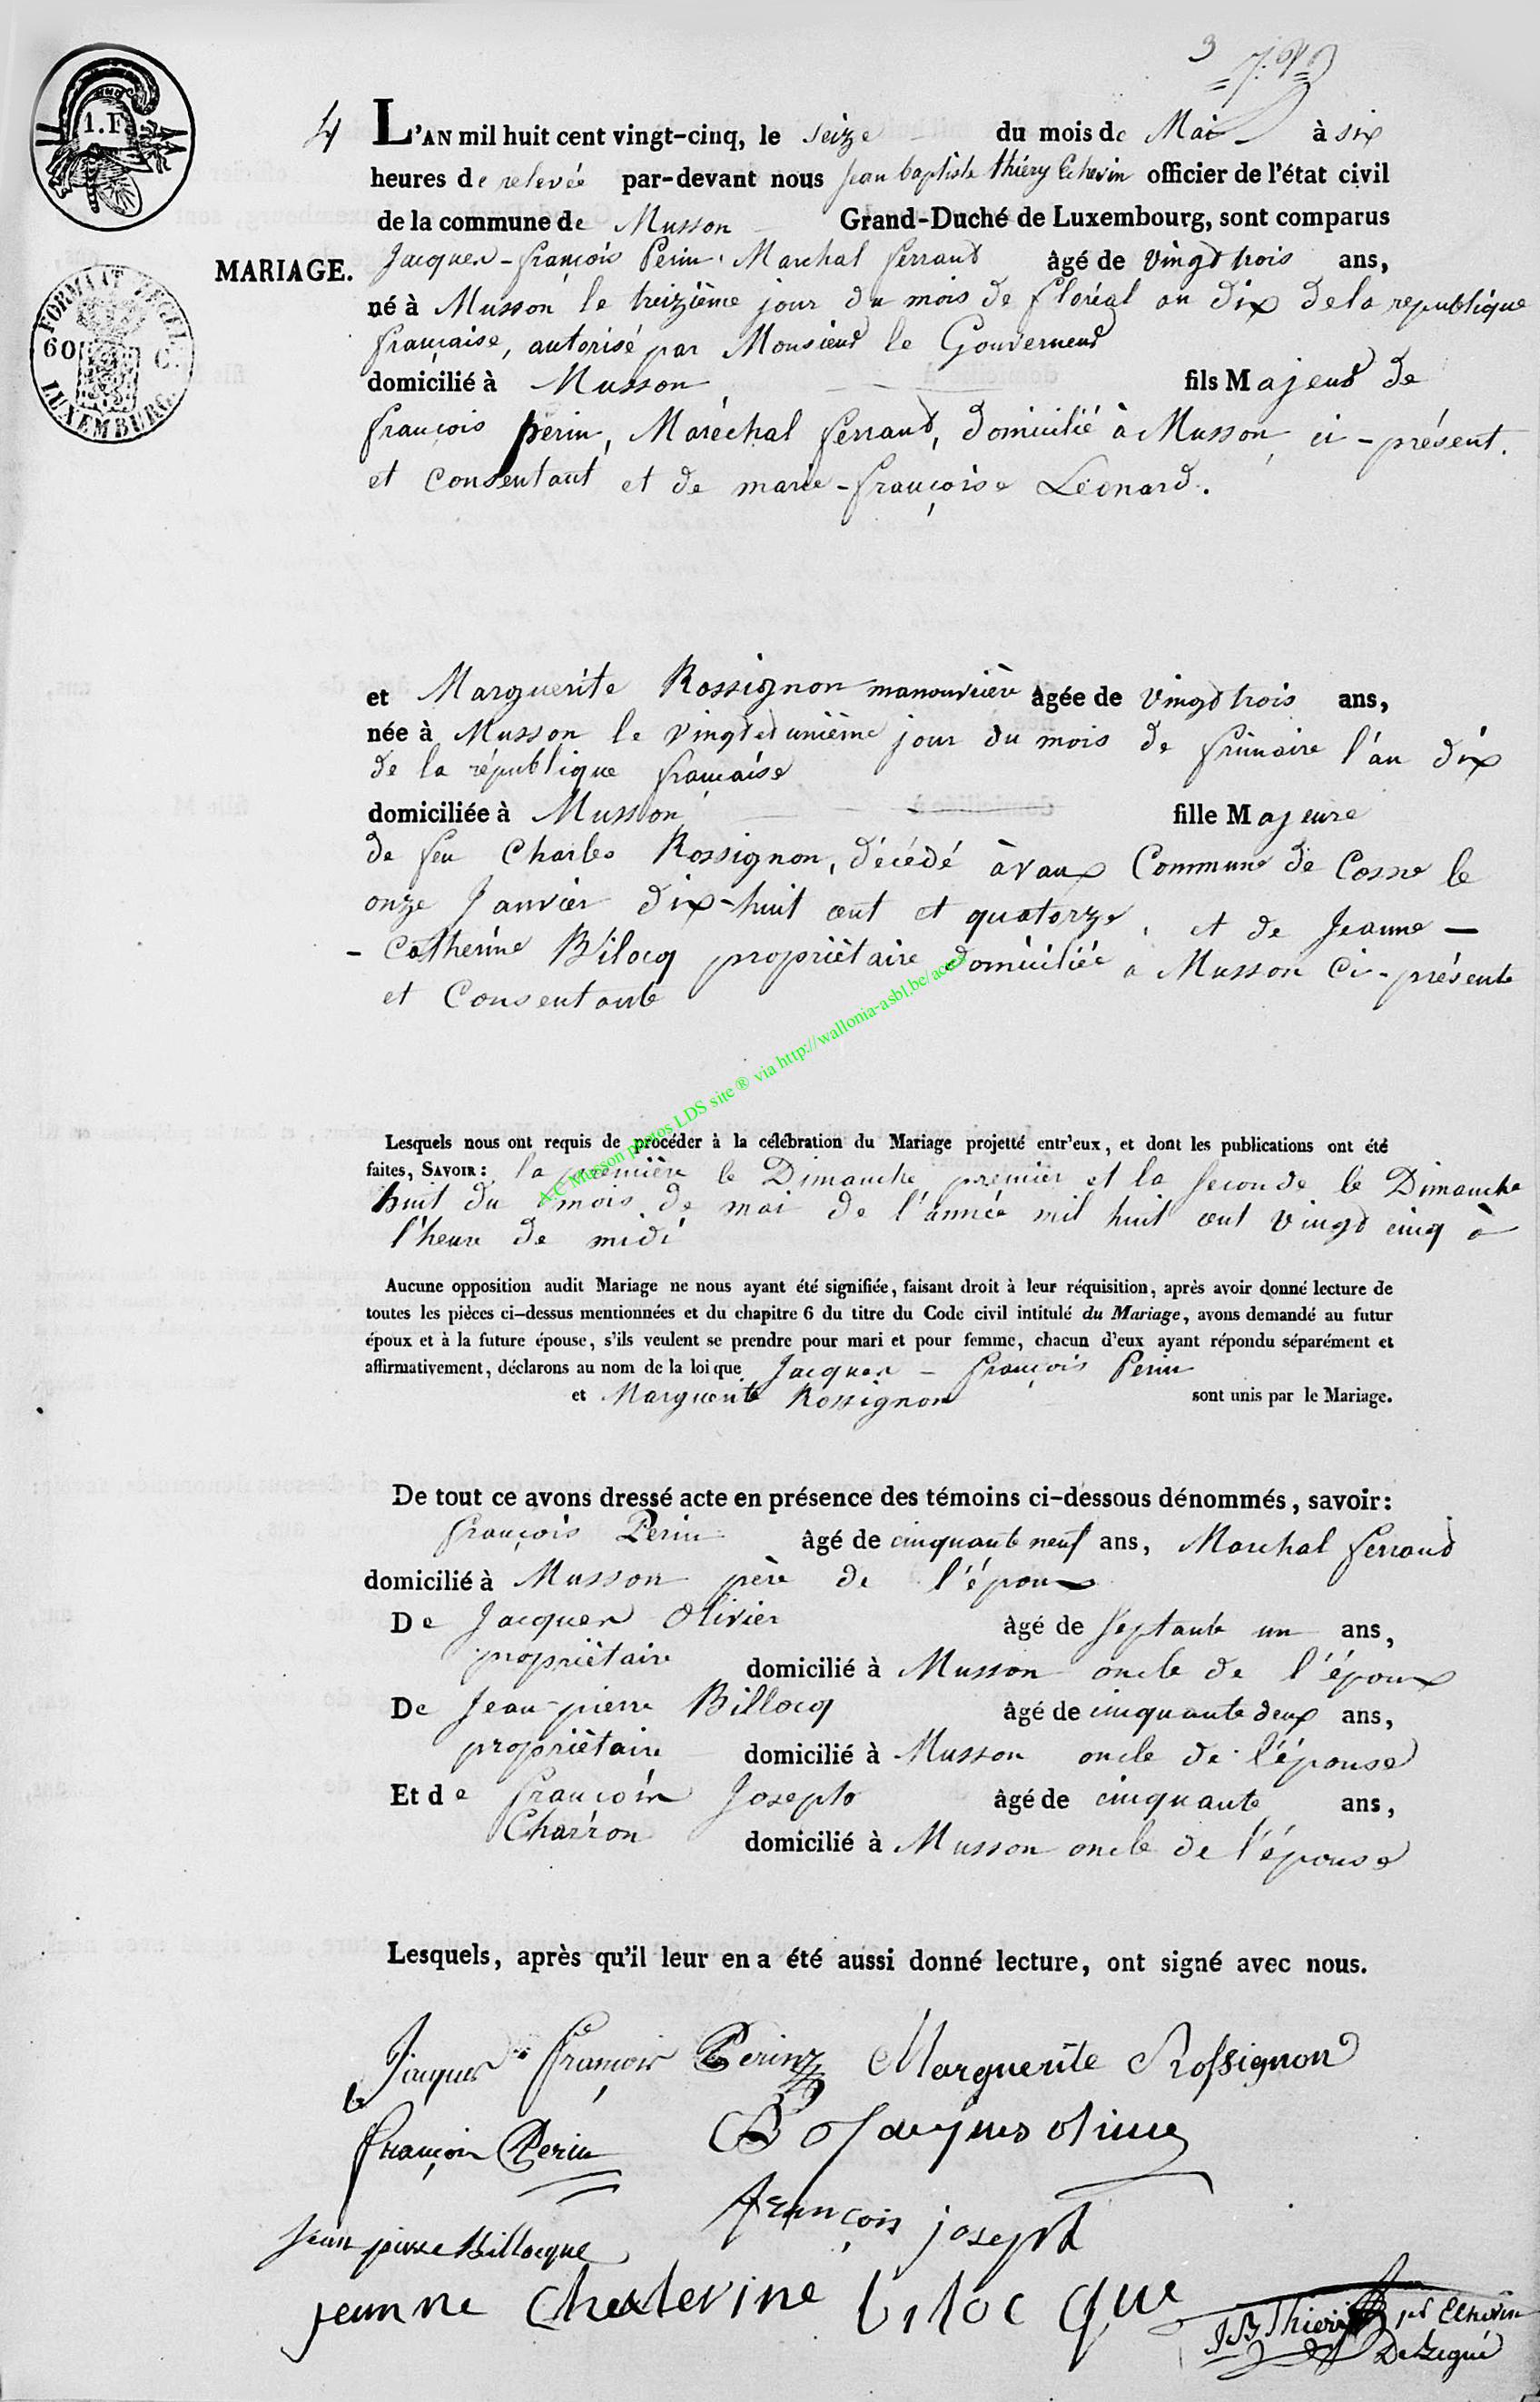 3
1. F.
4 L'AN mil huit cent vingt-cinq, le seize du mois de Mai à six
heures de relevée par-devant nous jean baptiste thiéry Echevin officier de l'état civil
de la commune de Musson Grand-Duché de Luxembourg, sont comparus
MARIAGE. Jacques-françois Perin, Marchal ferrant âgé de vingt trois ans,
FORMAAT ZEGEL
60 C.
LUXEMBURG
né à Musson le treizième jour du mois de floréal an dix de la republique
française, autorisé par Monsieur le Gouverneur
domicilié à Musson fils Majeur de
françois perin, Maréchal ferrant, domicilié à Musson, ci-présent.
et consentant et de marie-françoise Léonard.
et Marguerite Rossignon manouvrière âgée de vingt trois ans,
née à Musson le vingt et unième jour du mois de frimaire l'an dix
de la république française
domiciliée à Musson fille Majeure
de feu Charles Rossignon, décédé à vaux Commune de Cosne le
onze Janvier dix-huit cent et quatorze, et de Jeanne-
-Catherine Bilocq propriétaire domiciliée a Musson Ci-présente
et Consentante
A.C Musson photos LDS site ® via http://wallonia-asbl.be/aces
Lesquels nous ont requis de procéder à la célébration du Mariage projetté entr'eux, et dont les publications ont été
faites, SAVOIR: la première le Dimanche premier et la seconde le Dimanche
huit du mois de mai de l'année mil huit cent vingt cinq à
l'heure de midi
Aucune opposition audit Mariage ne nous ayant été signifiée, faisant droit à leur réquisition, après avoir donné lecture de
toutes les pièces ci-dessus mentionnées et du chapitre 6 du titre du Code civil intitulé du Mariage, avons demandé au futur
époux et à la future épouse, s'ils veulent se prendre pour mari et pour femme, chacun d'eux ayant répondu séparément et
affirmativement, déclarons au nom de la loi que Jacques-françois Perin
et Marguerite Rossignon sont unis par le Mariage.
De tout ce avons dressé acte en présence des témoins ci-dessous dénommés, savoir:
françois Perin âgé de cinquante neuf ans, Marchal ferrand
domicilié à Musson père de l'époux
De Jacques Olivier âgé de septante un ans,
propriétaire domicilié à Musson oncle de l'époux
De Jean-pierre Billocq âgé de cinquante deux ans,
propriétaire domicilié à Musson oncle de l'épouse
Et de françois Joseph âgé de cinquante ans,
Charron domicilié à Musson oncle de l'épouse
Lesquels, après qu'il leur en a été aussi donné lecture, ont signé avec nous.
Jacques françois Perin Marguerite Rossignon
françois Perin Jacques olivie
françois joseph
jean pierre Billocque
jeanne Chaterine biloc que
J B Thiery Echevin
Delégué